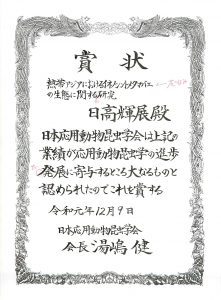 賞状
熱帯アジアにおける
の生態に関する研究
日高輝展殿
日本応用動物昆虫学会は上記の
業績が応用動物昆虫学の進歩
発展に寄与するところ大なるものと
認められたのでこれを賞する
令和元年12月9日
日本応用動物昆虫学会
会長 湯嶋 健